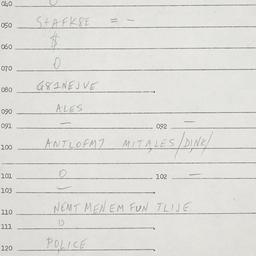 040 0
050 StAFK8E = -
060 $
070 0
080 G81NEJVE
090 ALES
091 — 092 —
100 ANTLOFM7 MITALES/DINK/
101 0 102 —
103 —
110 NEMT MEN EM FUN TLIJE
111 0
120 POLICE